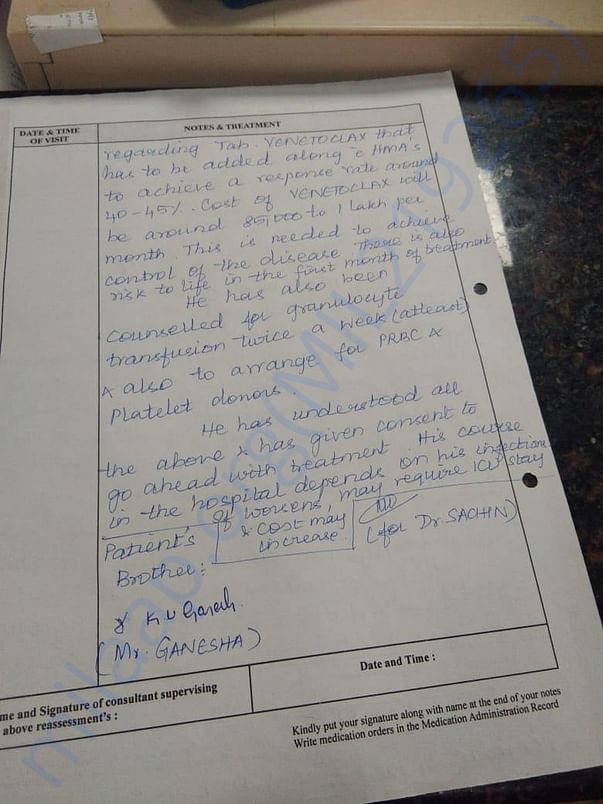 DATE & TIME
OF VISIT
NOTES & TREATMENT
regarding Tab. VENETOCLAX that
has to be added along c̄ HMA's
to achieve a response rate around
40-45%. Cost of VENETOCLAX will
be around 85,000 to 1 lakh per
month. This is needed to achieve
control of the disease. There is also
risk to life in the first month of treatment
He has also been
Counselled for granulocyte
transfusion twice a week (atleast)
& also to arrange for PRBC &
Platelet donors.
He has understood all
the above & has given consent to
go ahead with treatment. His course
in the hospital depends on his infection
If worsens, may require ICU stay
& cost may
increase.
Patient's
Brother:
(for Dr. SACHIN)
(Mr. GANESHA)
me and Signature of consultant supervising
above reassessment's :
Date and Time :
Kindly put your signature along with name at the end of your notes
Write medication orders in the Medication Administration Record